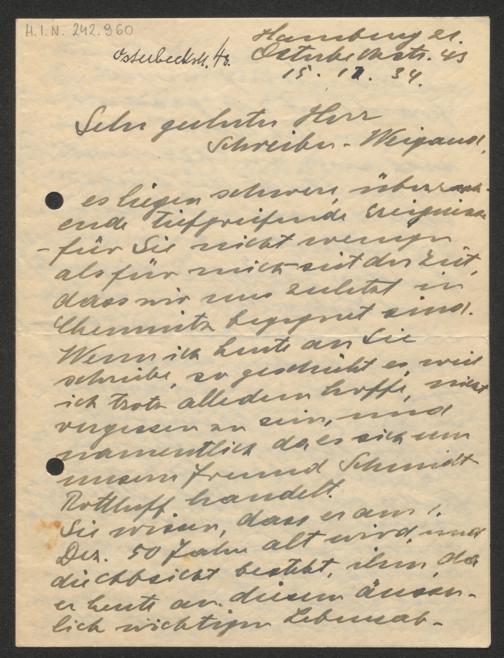 H.I.N. 242.960
Hamburg 21.
Osterbeckstr. 43
Osterbeckstr. 43.
15. 12. 34.
Sehr geehrter Herr
Schreiber-Weigand,
es liegen schwere, überrasch-
ende tiefgreifende Ereignisse
- für Sie nicht weniger
als für mich - seit der Zeit,
dass wir uns zuletzt in
Chemnitz begegnet sind.
Wenn ich heute an Sie
schreibe, so geschieht es, weil
ich trotz alledem hoffe, nicht
vergessen zu sein, und
namentlich da es sich um
unsern Freund Schmidt
Rottluff handelt.
Sie wissen, dass er am 1.
Dez. 50 Jahre alt wird, und
die Absicht besteht, ihm, da
er heute an diesem äusser-
lich wichtigen Lebensab-